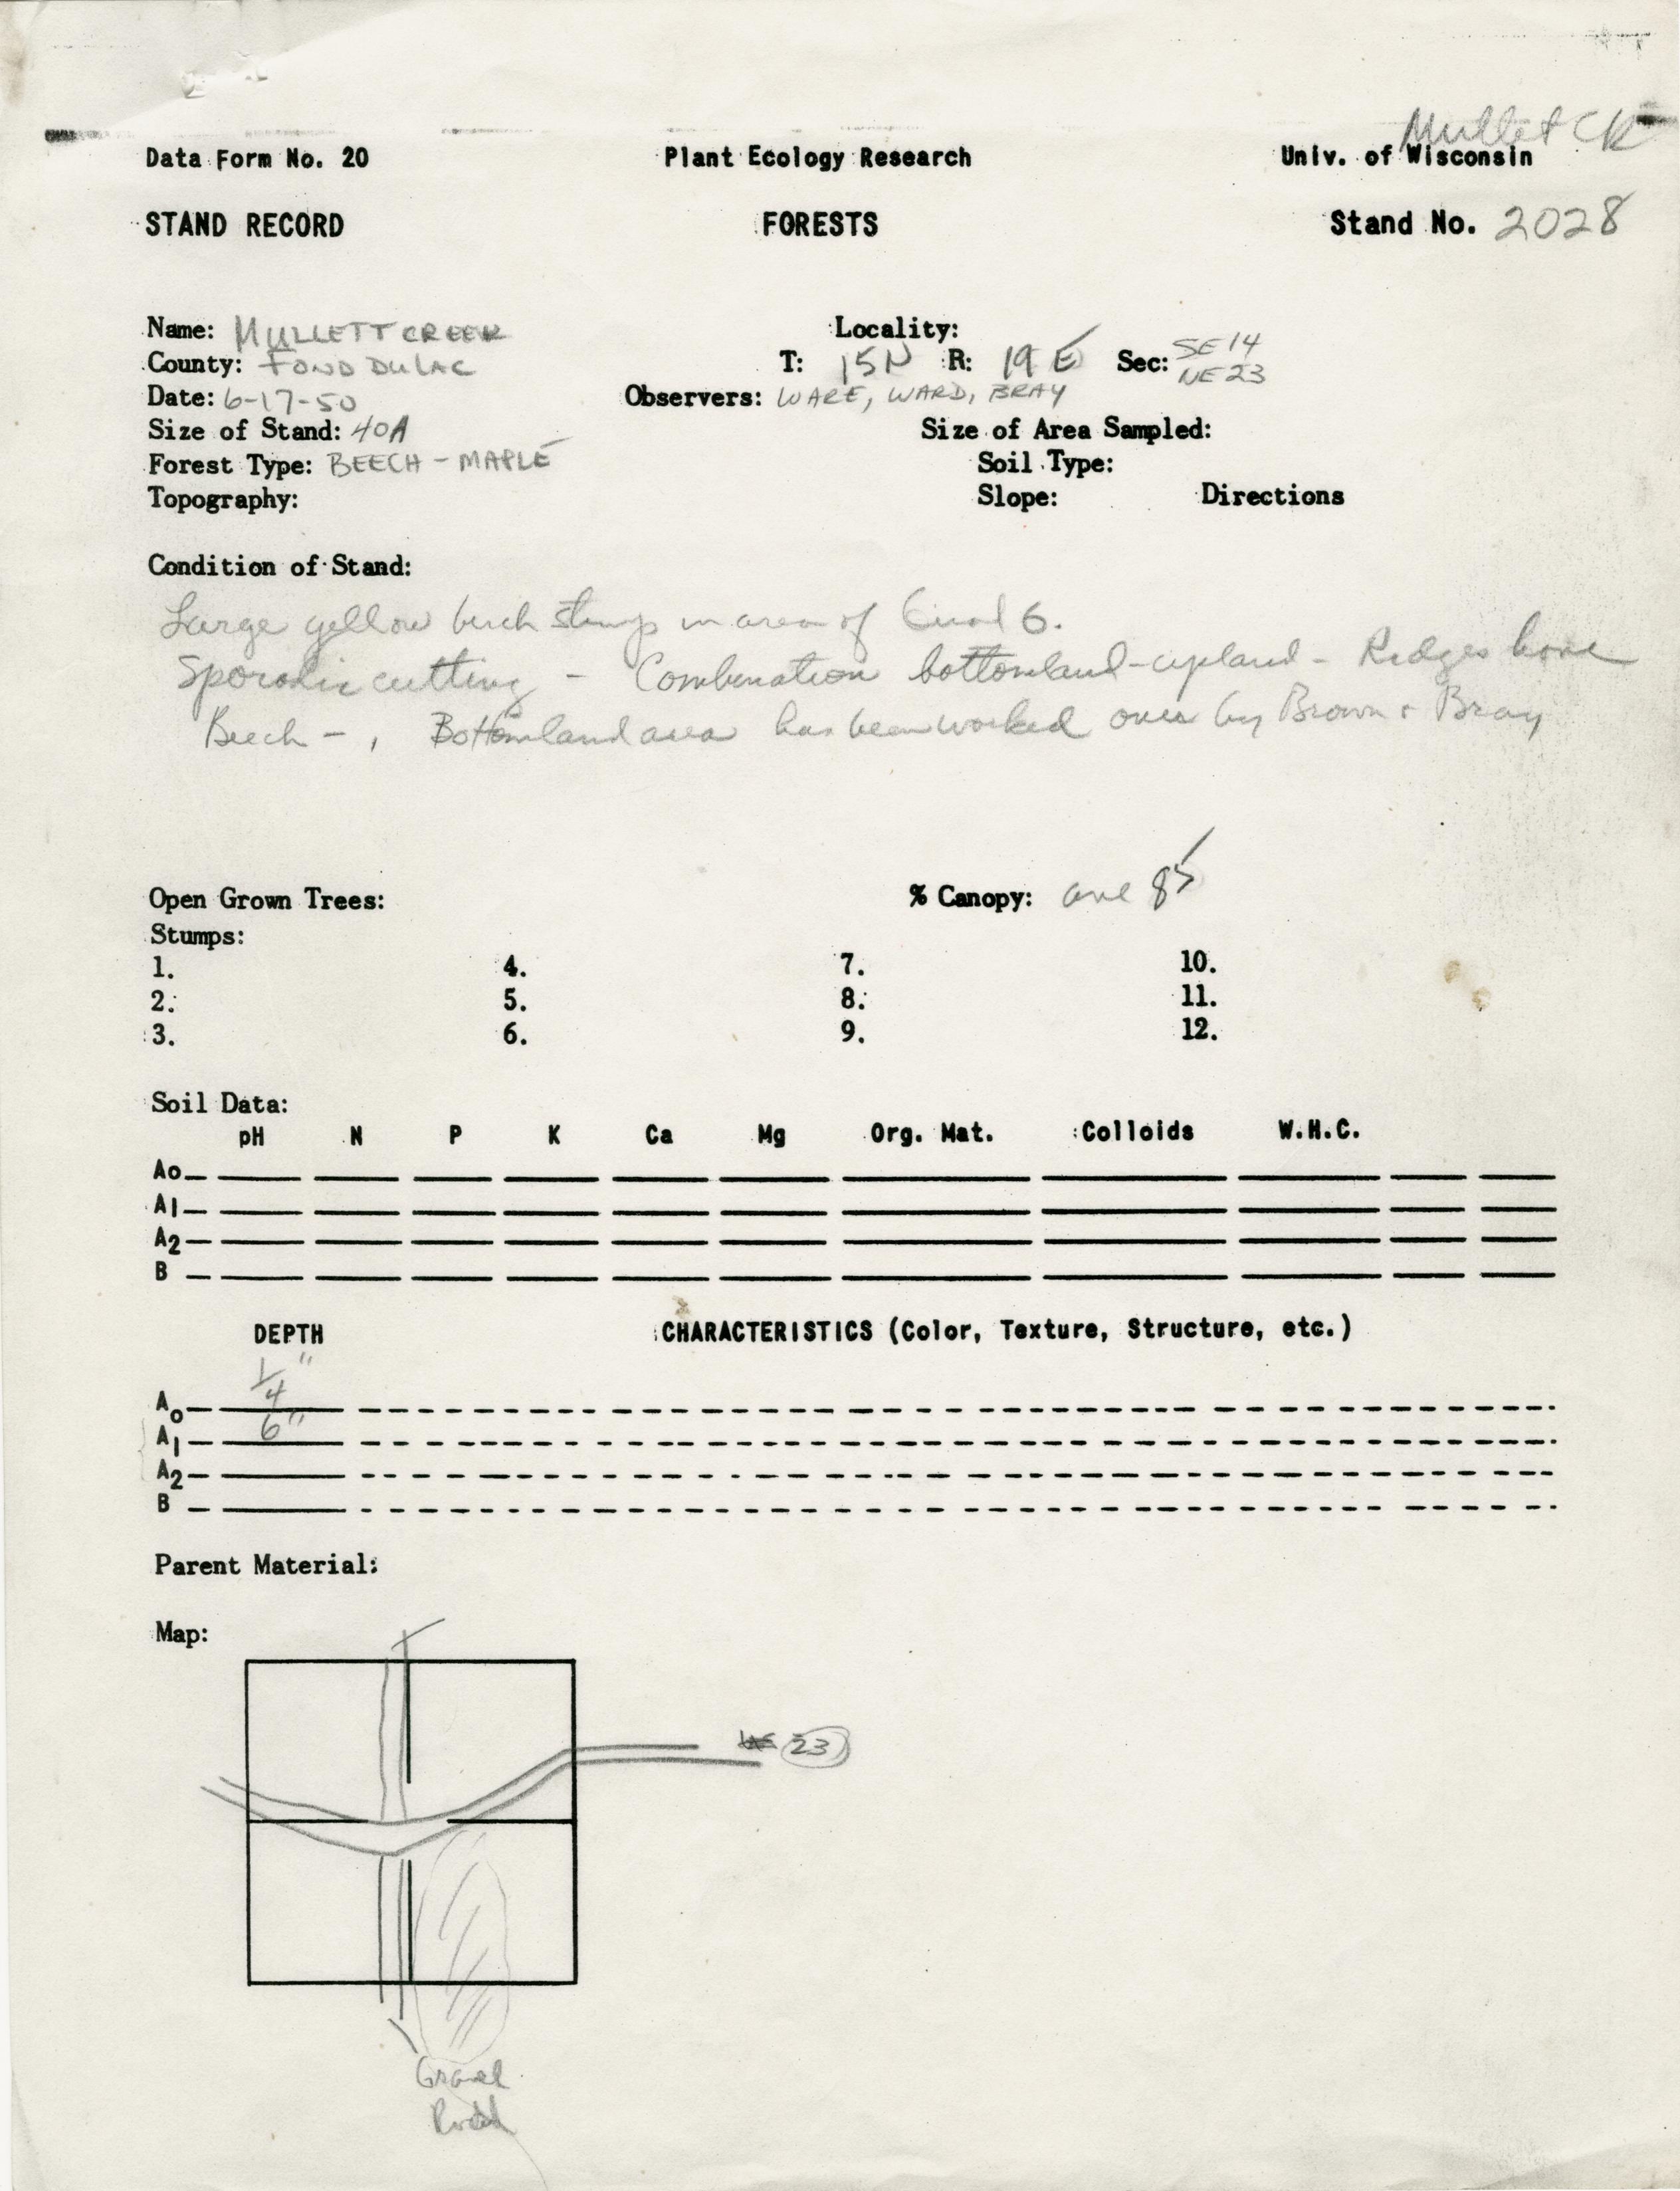 Mullet CK
Data Form No. 20 Plant Ecology Research Univ. of Wisconsin
STAND RECORD FORESTS Stand No. 2028
Name: MULLETT CREEK Locality:
County: FOND DU LAC T: 15N R: 19 E Sec: SE 14 NE 23
Date: 6-17-50 Observers: WARE, WARD, BRAY
Size of Stand: 40A Size of Area Sampled:
Forest Type: BEECH - MAPLE Soil Type:
Topography: Slope: Directions
Condition of Stand:
Large yellow birch stump in area of 6.
Sporadic cutting - Combination bottomland-upland - Ridges have
Beech - , Bottomland area has been worked over by Brown + Bray
Open Grown Trees: % Canopy: ave 85
Stumps:
1. 4. 7. 10.
2. 5. 8. 11.
3. 6. 9. 12.
Soil Data:
pH N P K Ca Mg Org. Mat. Colloids W.H.C.
Ao
A1
A2
B
DEPTH CHARACTERISTICS (Color, Texture, Structure, etc.)
Ao 1/4"
A1 6"
A2
B
Parent Material:
Map:
23
Gravel
Road